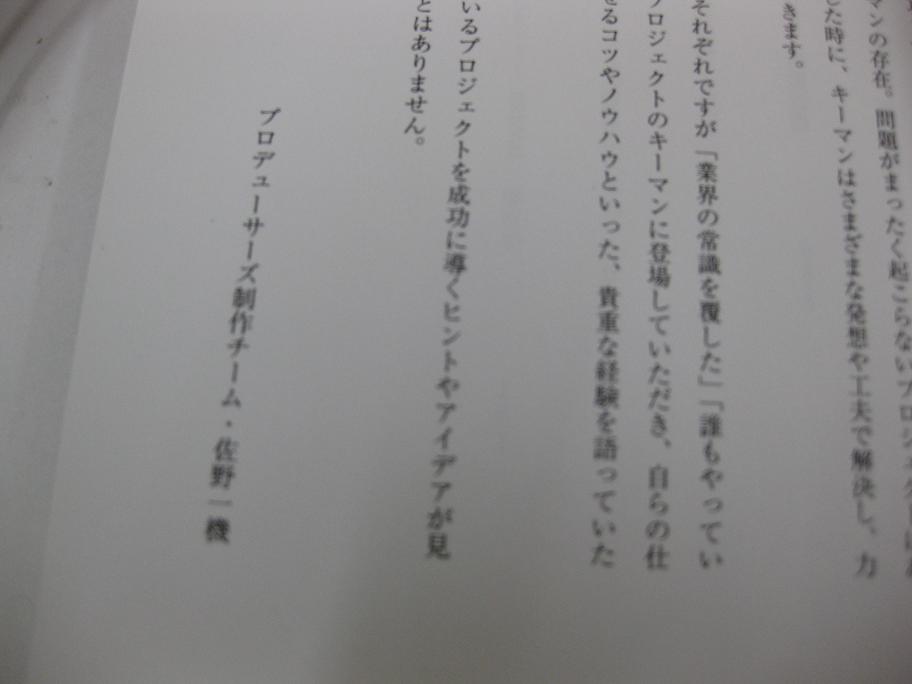 マンの存在。問題がまったく起こらないプロジェクトはあ
した時に、キーマンはさまざまな発想や工夫で解決し、力
きます。
それぞれですが「業界の常識を覆した」「誰もやってい
プロジェクトのキーマンに登場していただき、自らの仕
せるコツやノウハウといった、貴重な経験を語っていた
いるプロジェクトを成功に導くヒントやアイデアが見
とはありません。
プロデューサーズ制作チーム・佐野一機